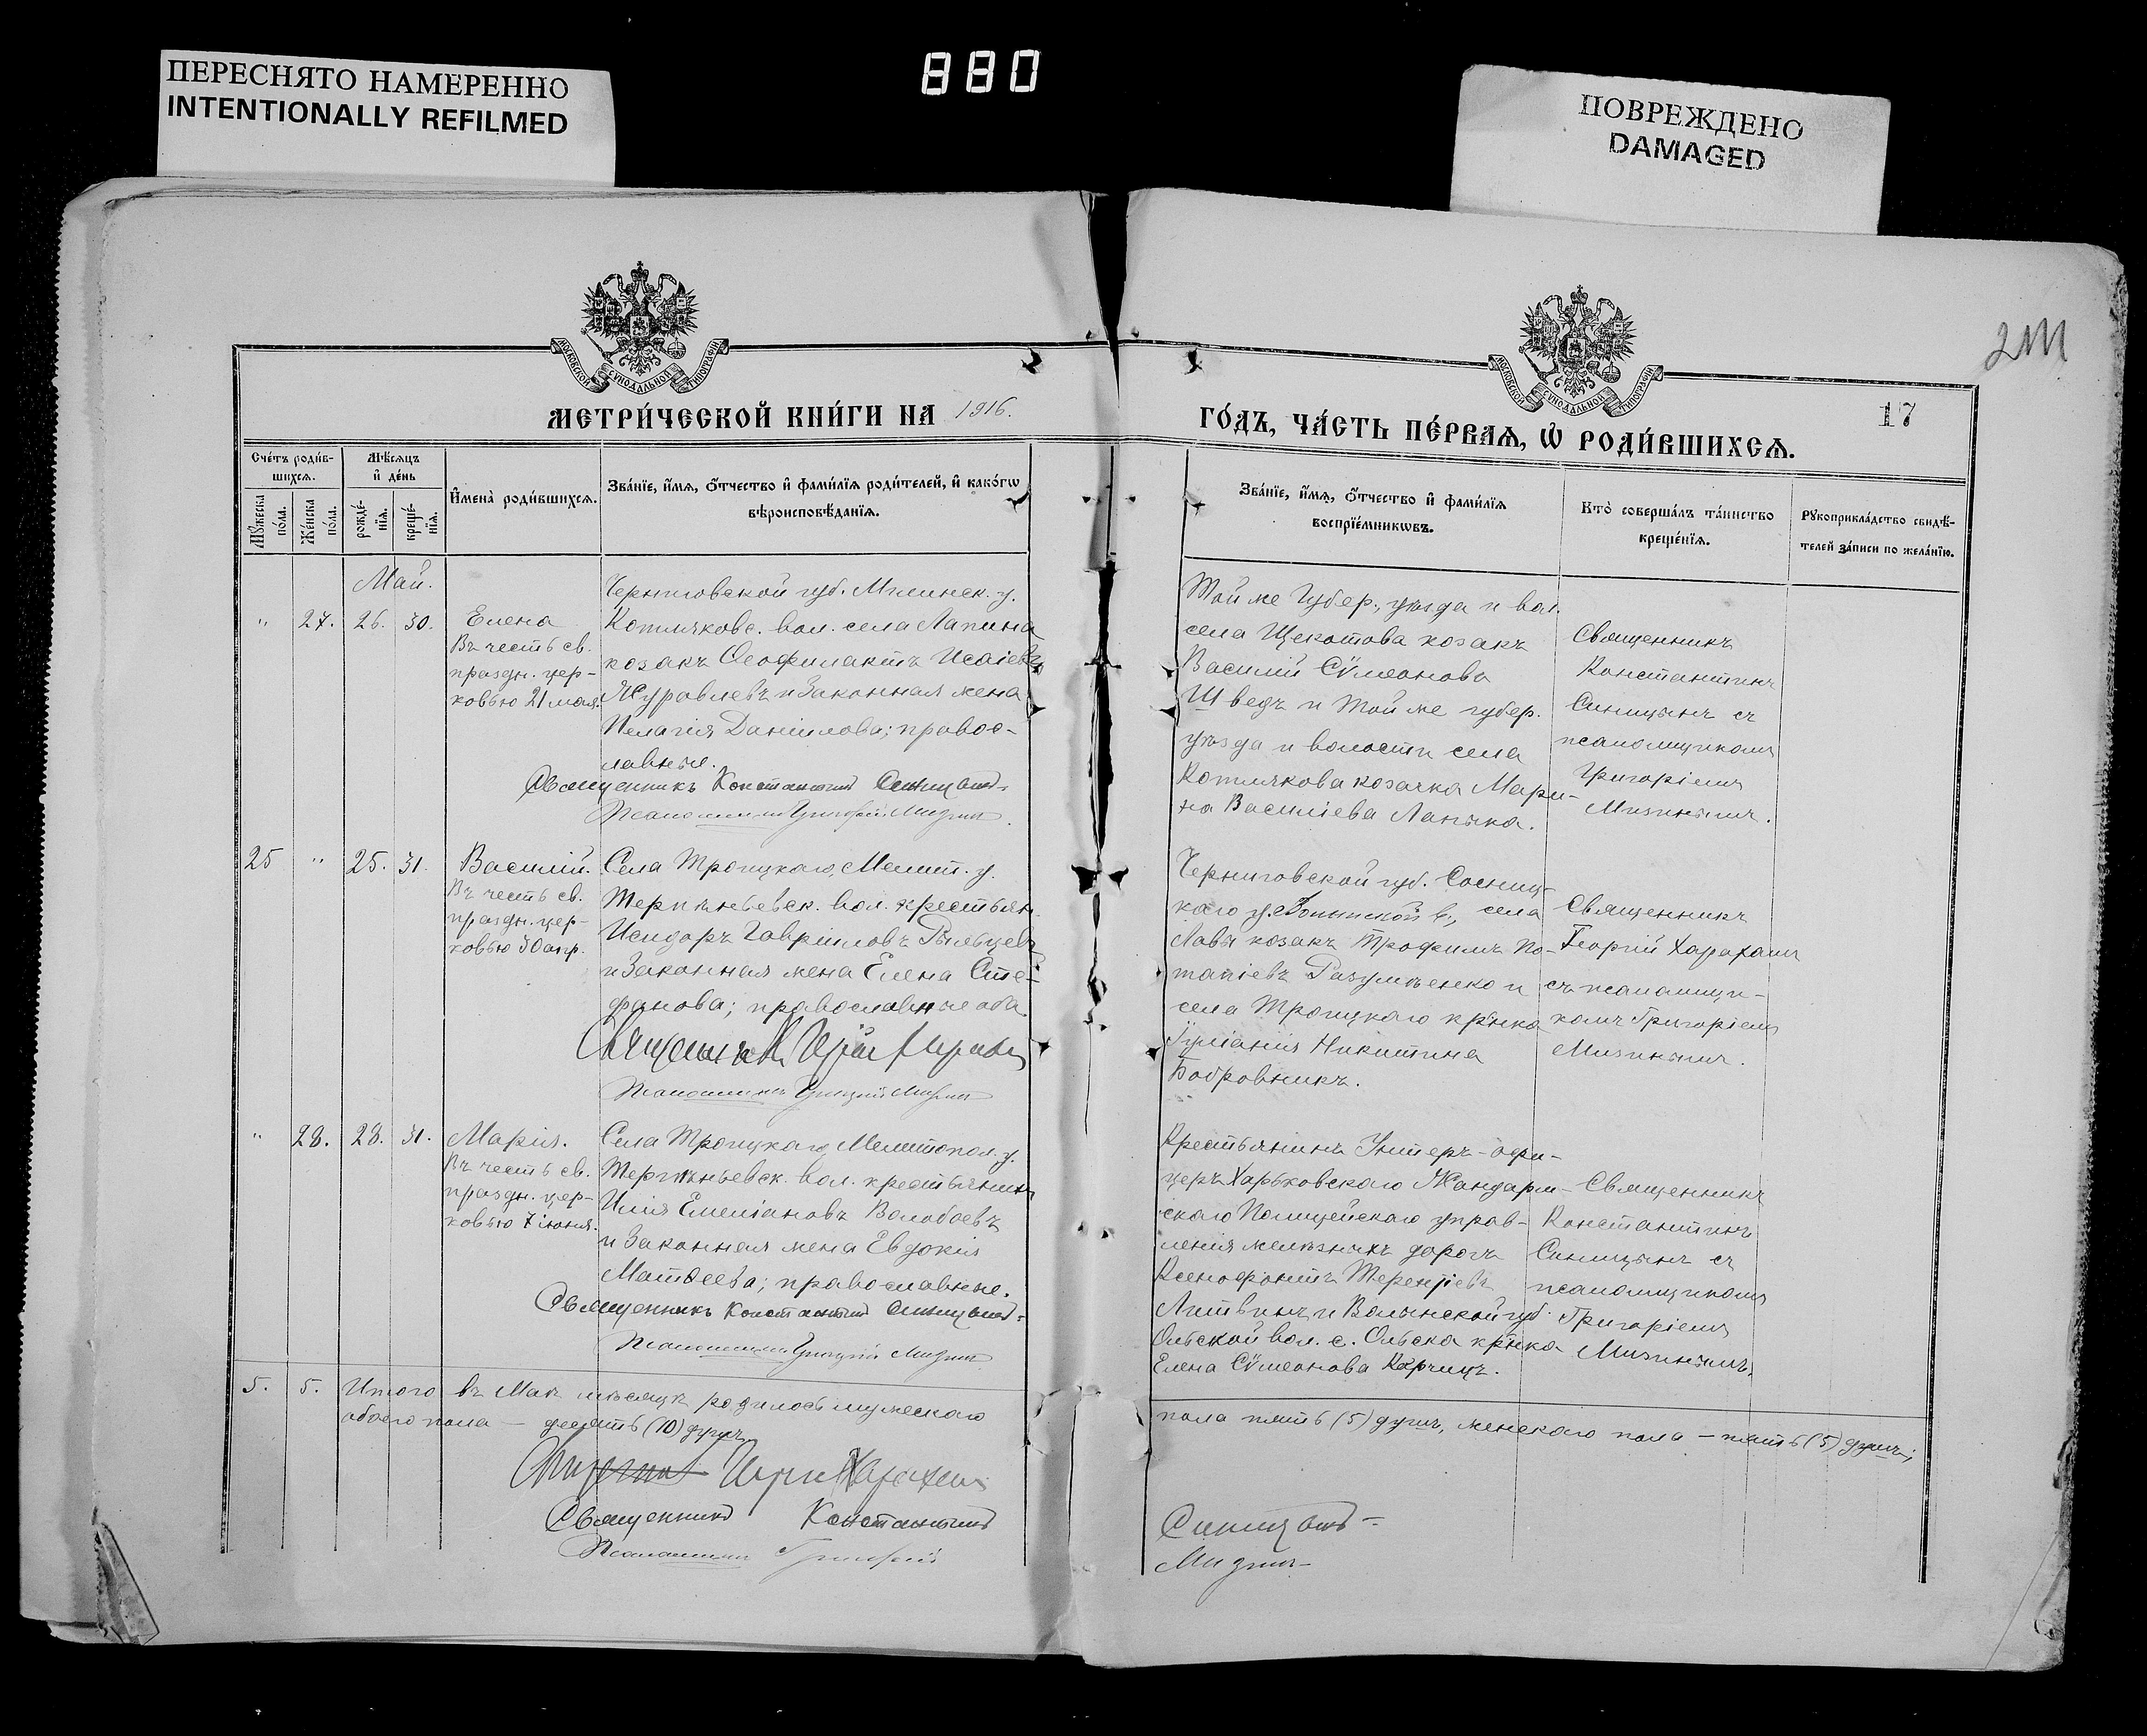 ПЕРЕСНЯТО НАМЕРЕННО
INTENTIONALLY REFILMED
880
ПОВРЕЖДЕНО
DAMAGED
МОСКОВСКОЙ СѴНОДАЛЬНОЙ ТИПОГРАФІИ
МОСКОВСКОЙ СѴНОДАЛЬНОЙ ТИПОГРАФІИ
МЕТРИ́ЧЕСКОЙ КНИ́ГИ НА 1916.
ГО́ДЪ, ЧА́СТЬ ПЕ́РВАѦ, Ѡ҆ РОДИ́ВШИХСѦ.
17
Сче́тъ роди́в-
шихсѧ.
Мꙋ́жеска по́ла.
Же́нска по́ла.
Мѣ́сѧцъ
и҆ де́нь
рожде́-
нїѧ.
креще́-
нїѧ.
И҆мена̀ роди́вшихсѧ.
Зва́нїе, и҆́мѧ, ѻ҆́тчество и҆ фами́лїѧ роди́телей, и҆ како́гѡ
вѣроисповѣ́данїѧ.
Зва́нїе, и҆́мѧ, ѻ҆́тчество и҆ фами́лїѧ
воспрїе́мникѡвъ.
Кто̀ соверша́лъ та́инство
креще́нїѧ.
Рꙋкоприкла́дство свидѣ́-
телей за́писи по жела́нїю.
Май.
" 27. 26. 30.
Елена
Въ честь св.
праздн. цер-
ковью 21 мая.
Черниговской губ. Мглинск. у.
Котляковс. вол. села Лапина
козакъ Ѳеофилактъ Исаіевъ
Журавлевъ и законная жена
Пелагія Даніилова; правос-
лавные.
Священникъ Константинъ Синицынъ
Псаломщикъ Григорій Мизинъ
Той же Губер., уѣзда и вол.
села Щекотова козакъ
Василій Сѵмеонова
Шведъ и той же губер.
уѣзда и волости села
Котлякова козачка Мари-
на Василіева Лапыка.
Священникъ
Константинъ
Синицынъ съ
псаломщикомъ
Григоріемъ
Мизинымъ.
25 " 25. 31.
Василій.
Въ честь св.
праздн. цер-
ковью 30 апр.
Села Троицкаго, Мелит. у.
Терпѣньевск. вол. крестьян.
Исидоръ Гавріиловъ Рыльцевъ
и законная жена Елена Сте-
фанова; православные оба.
Священникъ
Псаломщикъ Григорій Мизинъ
Черниговской губ. Сосниц-
каго у. села
Лавы козакъ Трофимъ По-
тапіевъ Разумѣенко и
села Троицкаго кр-нка
Іуліанія Никитина
Бобровникъ.
Священникъ
Георгій Харахашъ
съ псаломщи-
комъ Григоріемъ
Мизинымъ.
" 28. 28. 31.
Марія.
Въ честь св.
праздн. цер-
ковью 7 іюня.
Села Троицкаго, Мелитопол. у.
Терпѣньевск. вол. крестьянинъ
Илія Емеліановъ Волобоевъ
и законная жена Евдокія
Матѳеева; православные.
Священникъ Константинъ Синицынъ
Псаломщикъ Григорій Мизинъ
Крестьянинъ Унтеръ-офи-
церъ Харьковскаго Жандарм-
скаго Полицейскаго управ-
ленія желѣзныхъ дорогъ
Ксенофонтъ Терентіевъ
Литвинъ и Волынской губ.
Ольской вол. с. Ольска кр-нка
Елена Сѵмеонова Карчицъ.
Священникъ
Константинъ
Синицынъ съ
псаломщикомъ
Григоріемъ
Мизинымъ.
5. 5. Итого въ Маѣ мѣсяцѣ родилось мужескаго
пола пять (5) душъ, женскаго пола – пять (5) душъ;
обоего пола – десять (10) душъ.
Священникъ Константинъ Синицынъ
Псаломщикъ Григорій Мизинъ